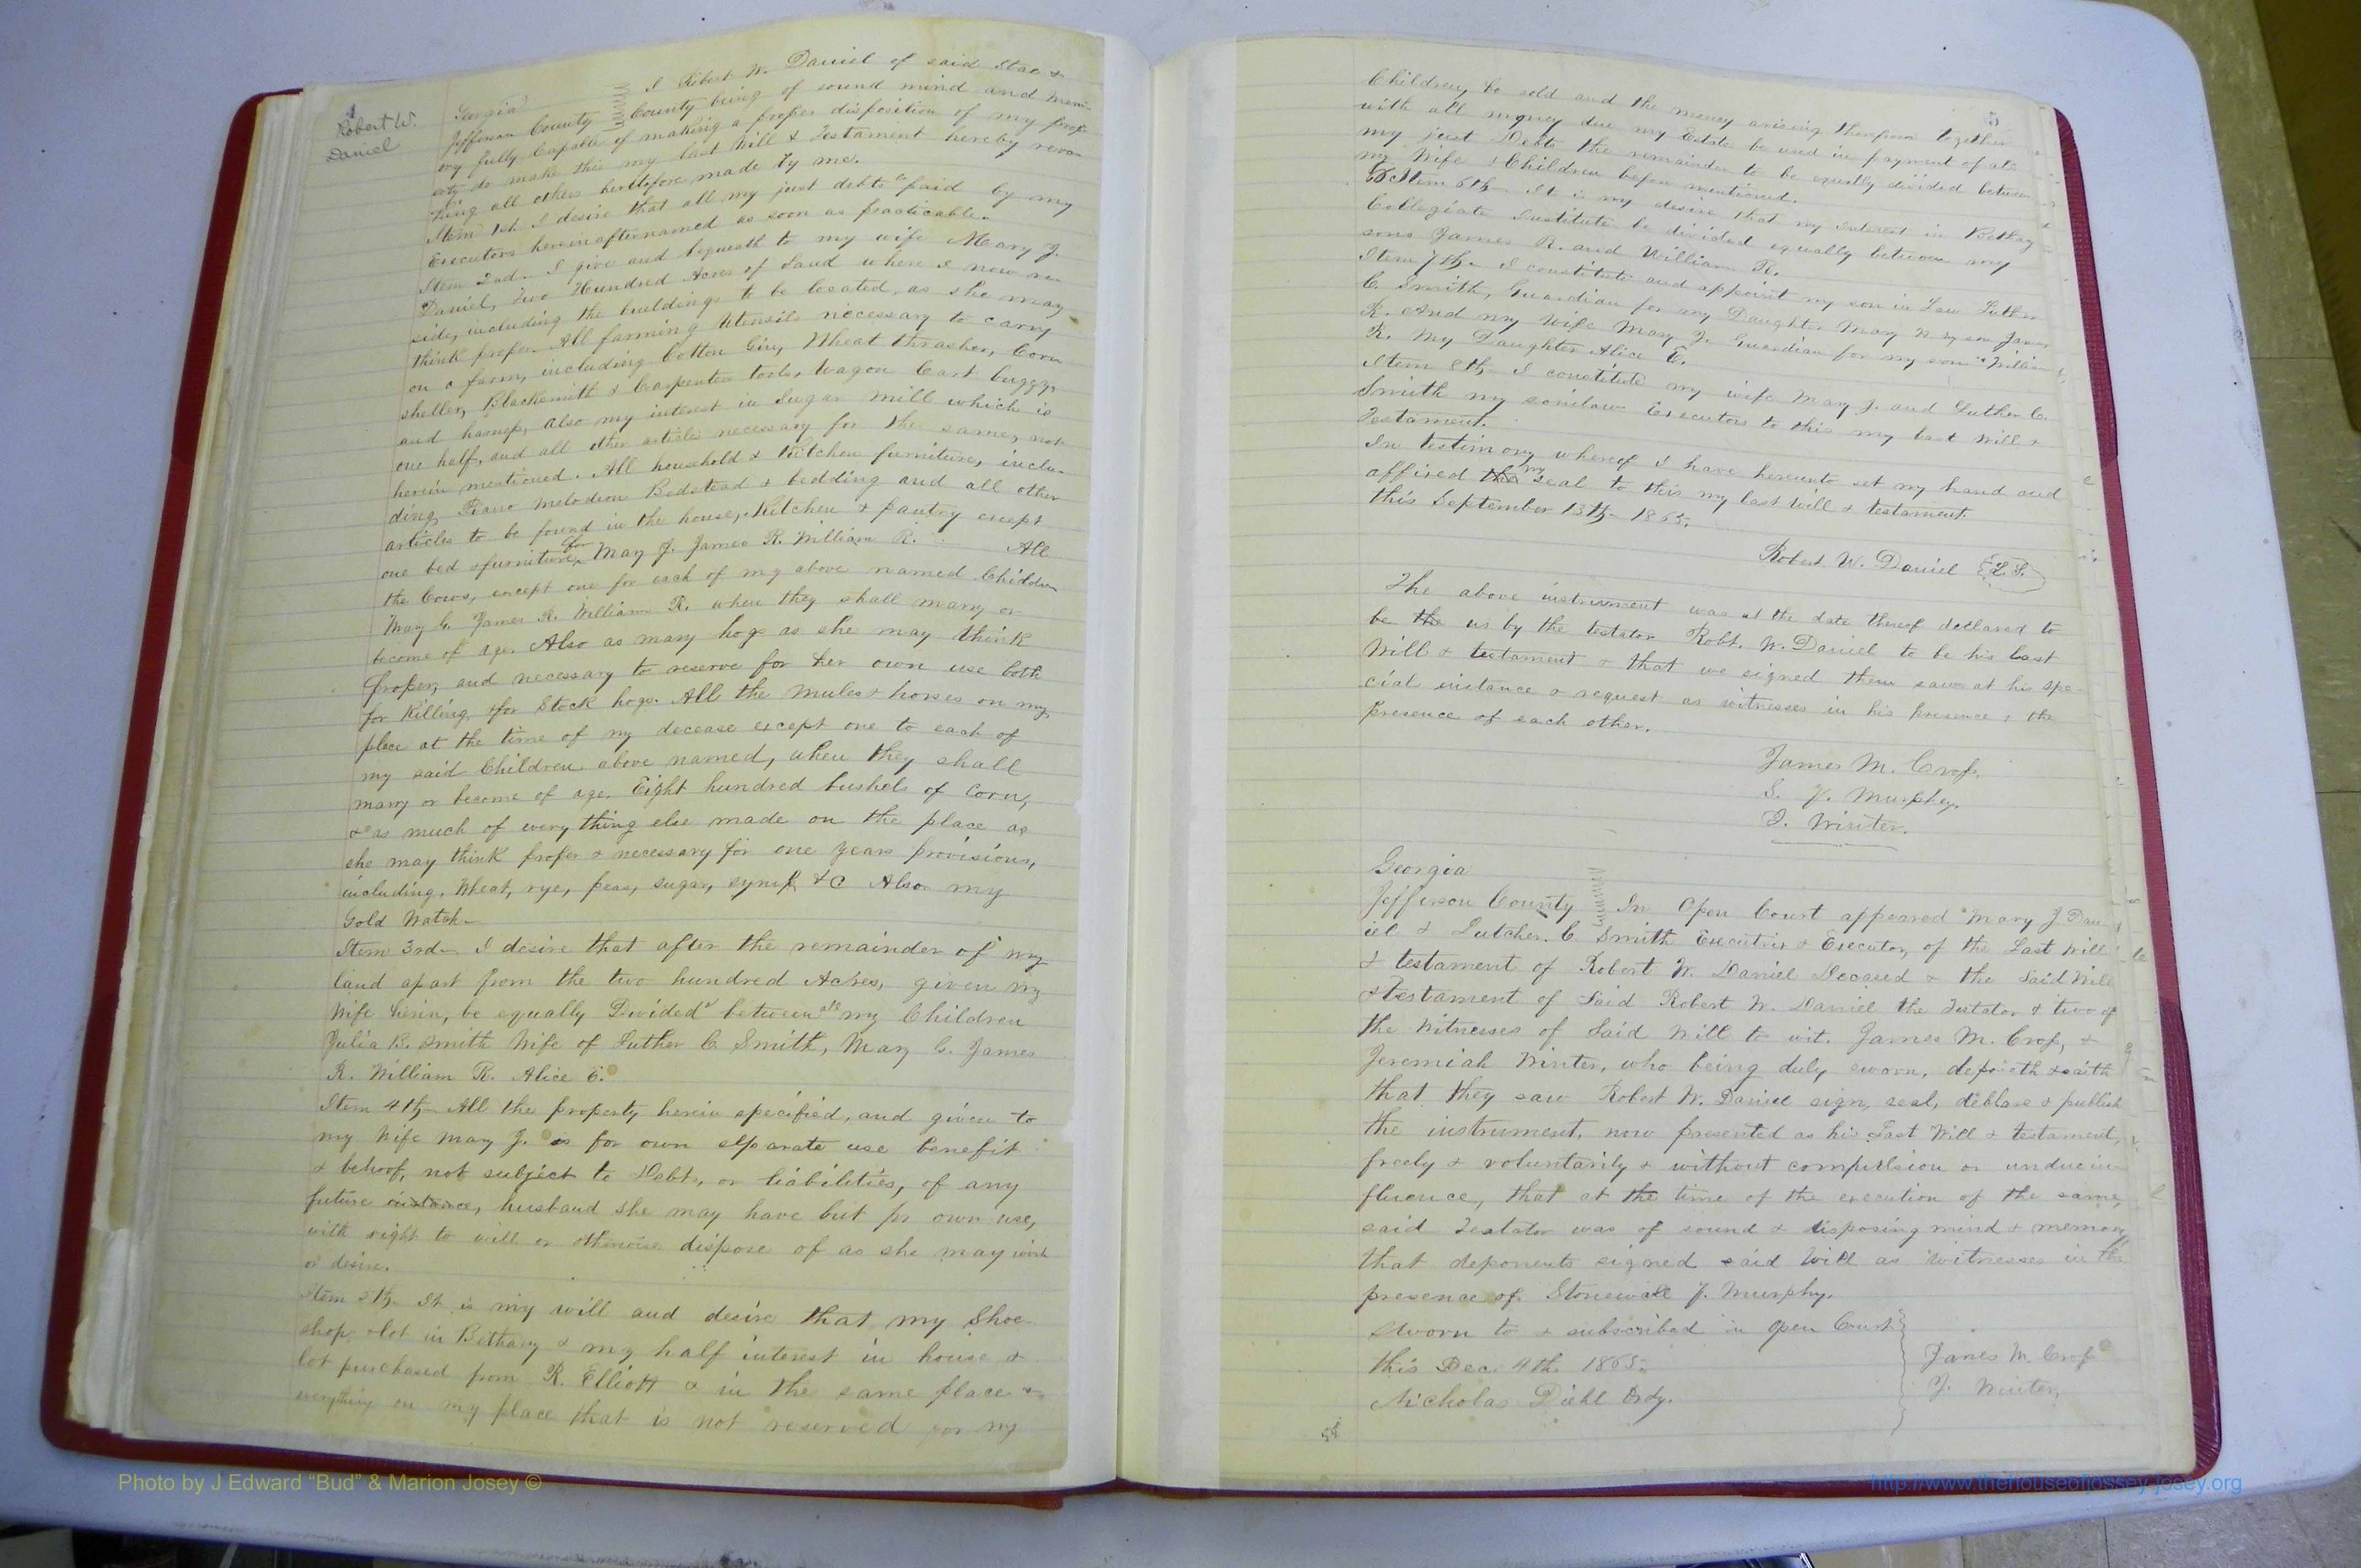 4
Robert W.
Daniel
Georgia I Robert W. Daniel of said State &
Jefferson County County being of sound mind and mem-
ory fully Capable of making a proper disposition of my prop-
erty do make this my last Will & Testament hereby revo-
king all others heretofore made by me.
Item 1st. I desire that all my just debts be paid by my
Executors hereinafter named as soon as practicable.
Item 2nd. I give and bequeath to my wife Mary J.
Daniel, Two Hundred Acres of Land where I now re-
side, including the buildings to be located, as she may
think proper. All farming Utensils necessary to carry
on a farm, including Cotton Gin, Wheat thrasher, Corn
sheller, Blacksmith & Carpenters tools, Wagon Cart buggy,
and harness, also my interest in Sugar Mill which is
one half, and all other articles necessary for the same, not
herein mentioned. All household & Kitchen furniture, inclu-
ding Piano Melodeon Bedstead & bedding and all other
articles to be found in the house, Kitchen & pantry except
one bed & furniture for Mary J. James R. William R. All
the Cows, except one for each of my above named Children
Mary G. James R. William R. when they shall marry or
become of age. Also as many hogs as she may think
proper, and necessary to reserve for her own use both
for Killing & for Stock hogs. All the mules & horses on my
place at the time of my decease except one to each of
my said Children above named, when they shall
marry or become of age. Eight hundred bushels of Corn,
& as much of every thing else made on the place as
she may think proper & necessary for one years provisions,
including, Wheat, rye, peas, sugar, syrup, &c Also my
Gold Watch
Item 3rd. I desire that after the remainder of my
land apart from the two hundred Acres, given my
Wife herin, be equally Divided between all my Children
Julia B. Smith Wife of Luther C Smith, Mary G. James
R. William R. Alice E.
Item 4th. All the property herein specified, and given to
my Wife Mary J. is for own separate use benefit
& behoof, not subject to Debts, or liabilities, of any
future instance, husband she may have but for own use,
with right to will or otherwise dispose of as she may wish
or desire.
Item 5th. It is my will and desire that my Shoe
shop & lot in Bethany & my half interest in house &
lot purchased from R. Elliott & in the same place &
everything on my place that is not reserved for my
5
Children, be sold and the money arising therefrom together
with all money due my Estate be used in payment of all
my just Debts the remainder to be equally divided between
my Wife & Children before mentioned.
Item 6th. It is my desire that my interest in Bethany
Collegiate Institute be divided equally between my
sons James R. and William R.
Item 7th. I constitute and appoint my son in Law Luther
C. Smith, Guardian for my Daughter Mary my son James
R. And my Wife Mary J. Guardian for my son William
R. My Daughter Alice E.
Item 8th. I constitute my wife Mary J. and Luther C.
Smith my soninlaw Executors to this my last Will &
Testament.
In testimony whereof I have hereunto set my hand and
affixed the my seal to this my last Will & testament
this September 13th. 1865.
Robert W. Daniel L.S.
The above instrument was at the date thereof declared to
be the us by the testator Robt. W. Daniel to be his last
Will & testament & that we signed them same at his spe-
cial instance & request as witnesses in his presence & the
presence of each other.
James M. Cross.
S. J. Murphey.
J. Winter.
Georgia
Jefferson County In Open Court appeared Mary J Dan
iel & Luther. C Smith Executrix & Executor, of the Last Will
& testament of Robert W. Daniel Decased & the Said Will
& testament of Said Robert W. Daniel the Testator & two of
the Witnesses of Said Will to wit. James M. Cross, &
Jeremiah Winter, who being duly sworn, deposeth & saith
that they saw Robert W. Daniel sign, seal, declare & publish
the instrument, now presented as his Last Will & testament,
freely & voluntarily & without compulsion or undue in
fluence, that at the time of the execution of the same,
said Testator was of sound & disposing mind & memory
that deponents signed said Will as witnesses in the
presence of Stonewall J. Murphy.
Sworn to & subscribed in open Court
this Dec. 4th. 1865.
James M. Cross
Nicholas Diehl Ordy.
J. Winter,
Photo by J Edward “Bud” & Marion Josey ©
http://www.thehouseofjossey-josey.org